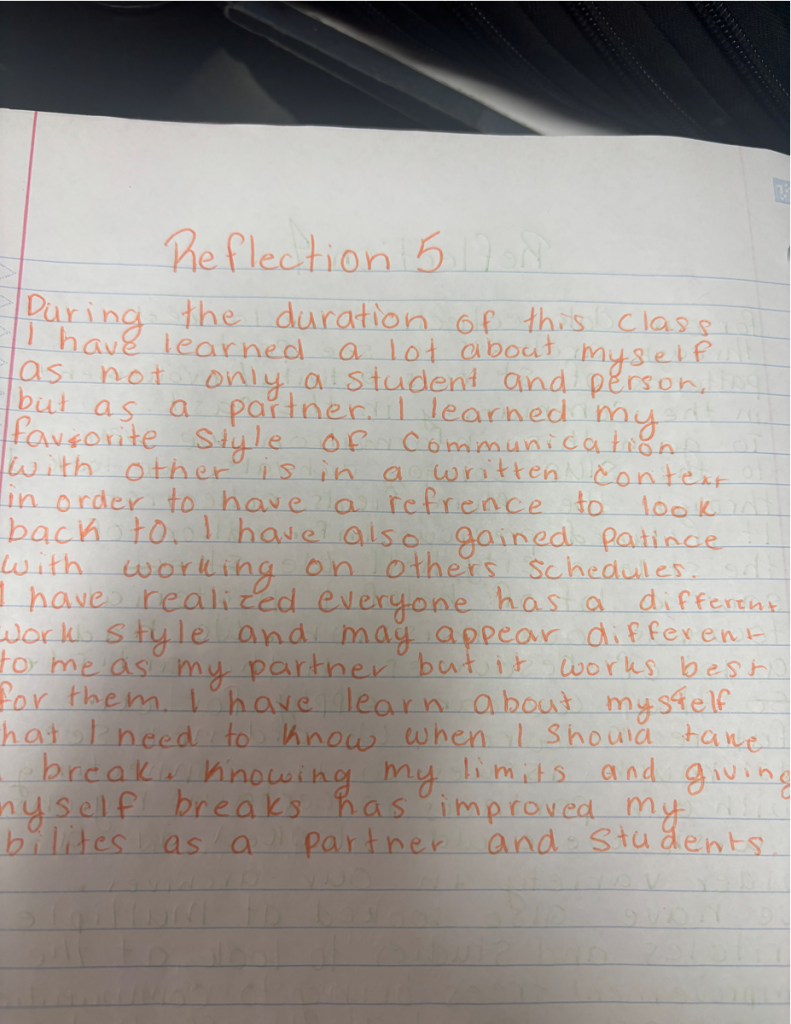 Reflection 5
During the duration of this class
I have learned a lot about myself
as not only a student and person,
but as a partner. I learned my
favorite style of communication
with other is in a written context
in order to have a refrence to look
back to. I have also gained patince
with working on others schedules.
I have realized everyone has a different
work style and may appear different
to me as my partner but it works best
for them. I have learn about myself
hat I need to know when I should take
break. Knowing my limits and giving
myself breaks has improved my
bilites as a partner and students.